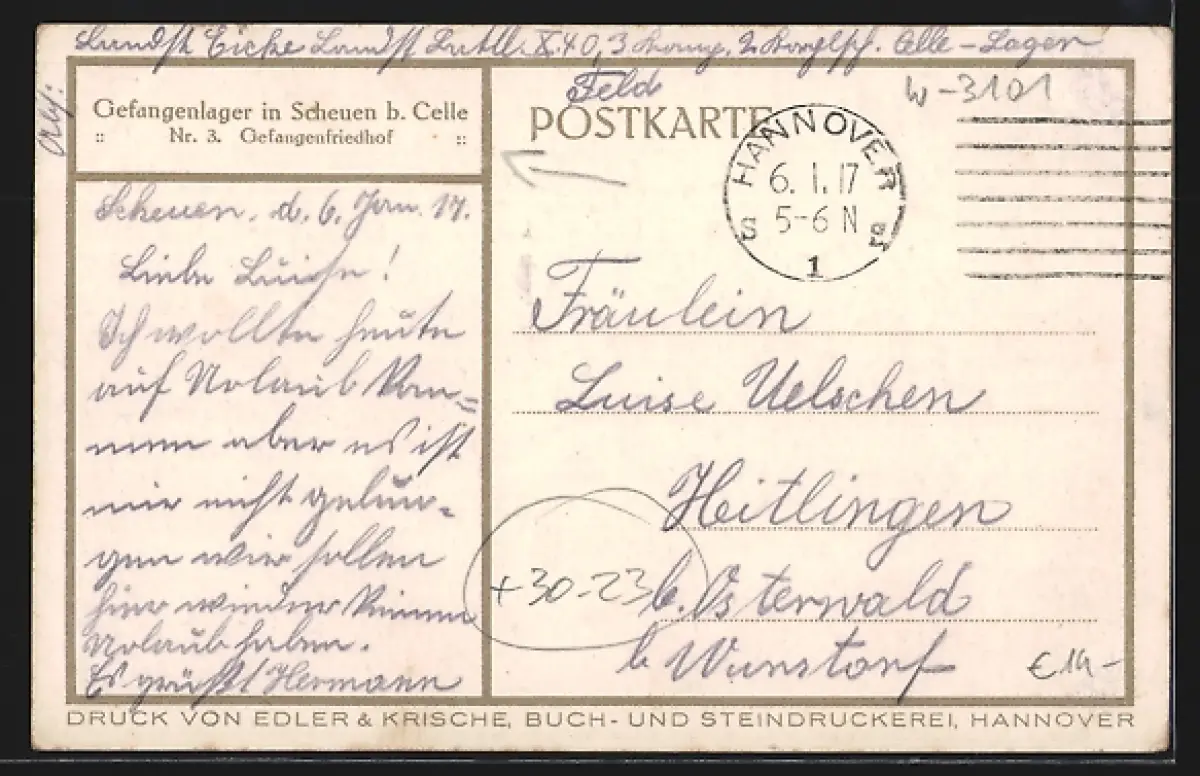 Landst Eicke Landst Batll. X. 40, 3 Komp. Celle-Lager
Abs:
Feld
W-3101
Gefangenlager in Scheuen b. Celle
:: Nr. 3. Gefangenfriedhof ::
POSTKARTE
HANNOVER
6. 1. 17
5-6 N
S
1
Scheuen, d. 6. Jan. 17.
Liebe Luise!
Ich wollte heute
auf Urlaub kom=
men aber es ist
mir nicht gelun-
gen wir sollen
hier wieder keinen
Urlaub haben.
Es grüßt Hermann
Fräulein
Luise Uelschen
Heitlingen
b. Osterwald
b Wunstorf
+30-23
€ 14-
DRUCK VON EDLER & KRISCHE, BUCH- UND STEINDRUCKEREI, HANNOVER